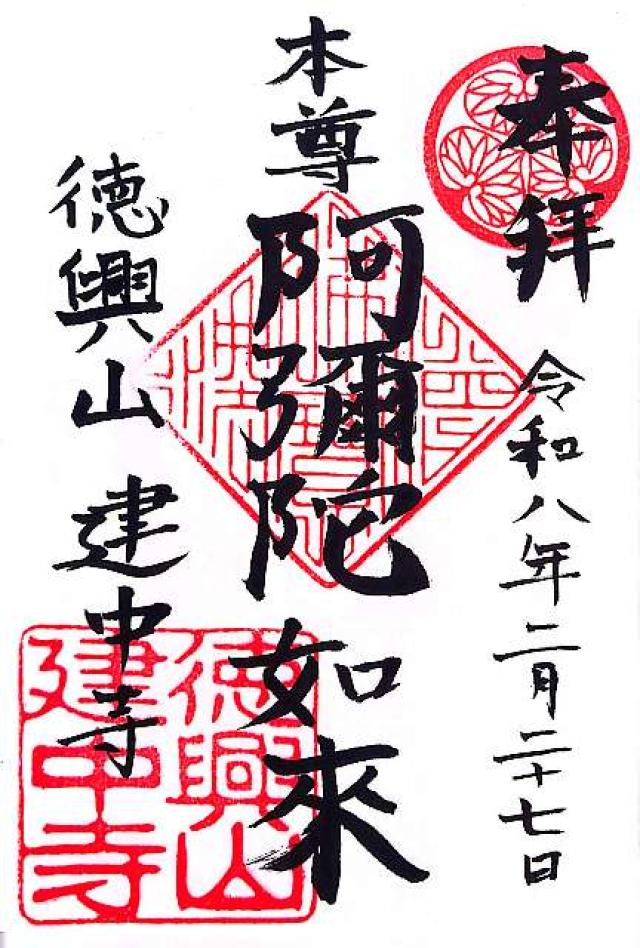 奉拝
令和八年二月二十七日
本尊
阿彌陀如來
徳興山 建中寺
徳興山
建中寺